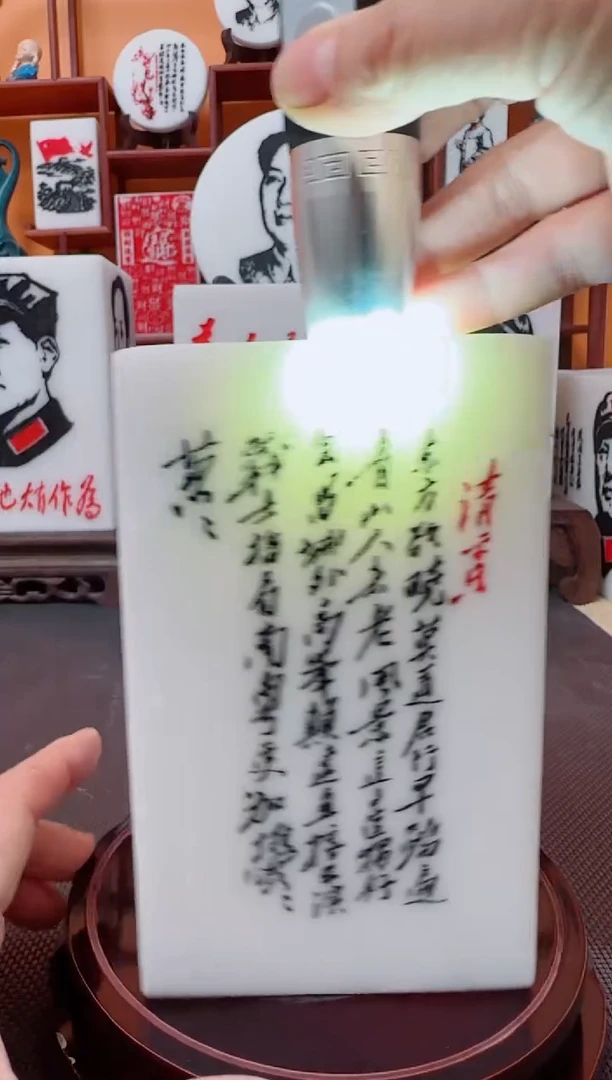 清平乐
东方欲晓莫道君行早踏遍
青山人未老风景这边独好
会昌城外高峰颠连直接东溟
战士指看南粤更加郁郁
葱
大有作为